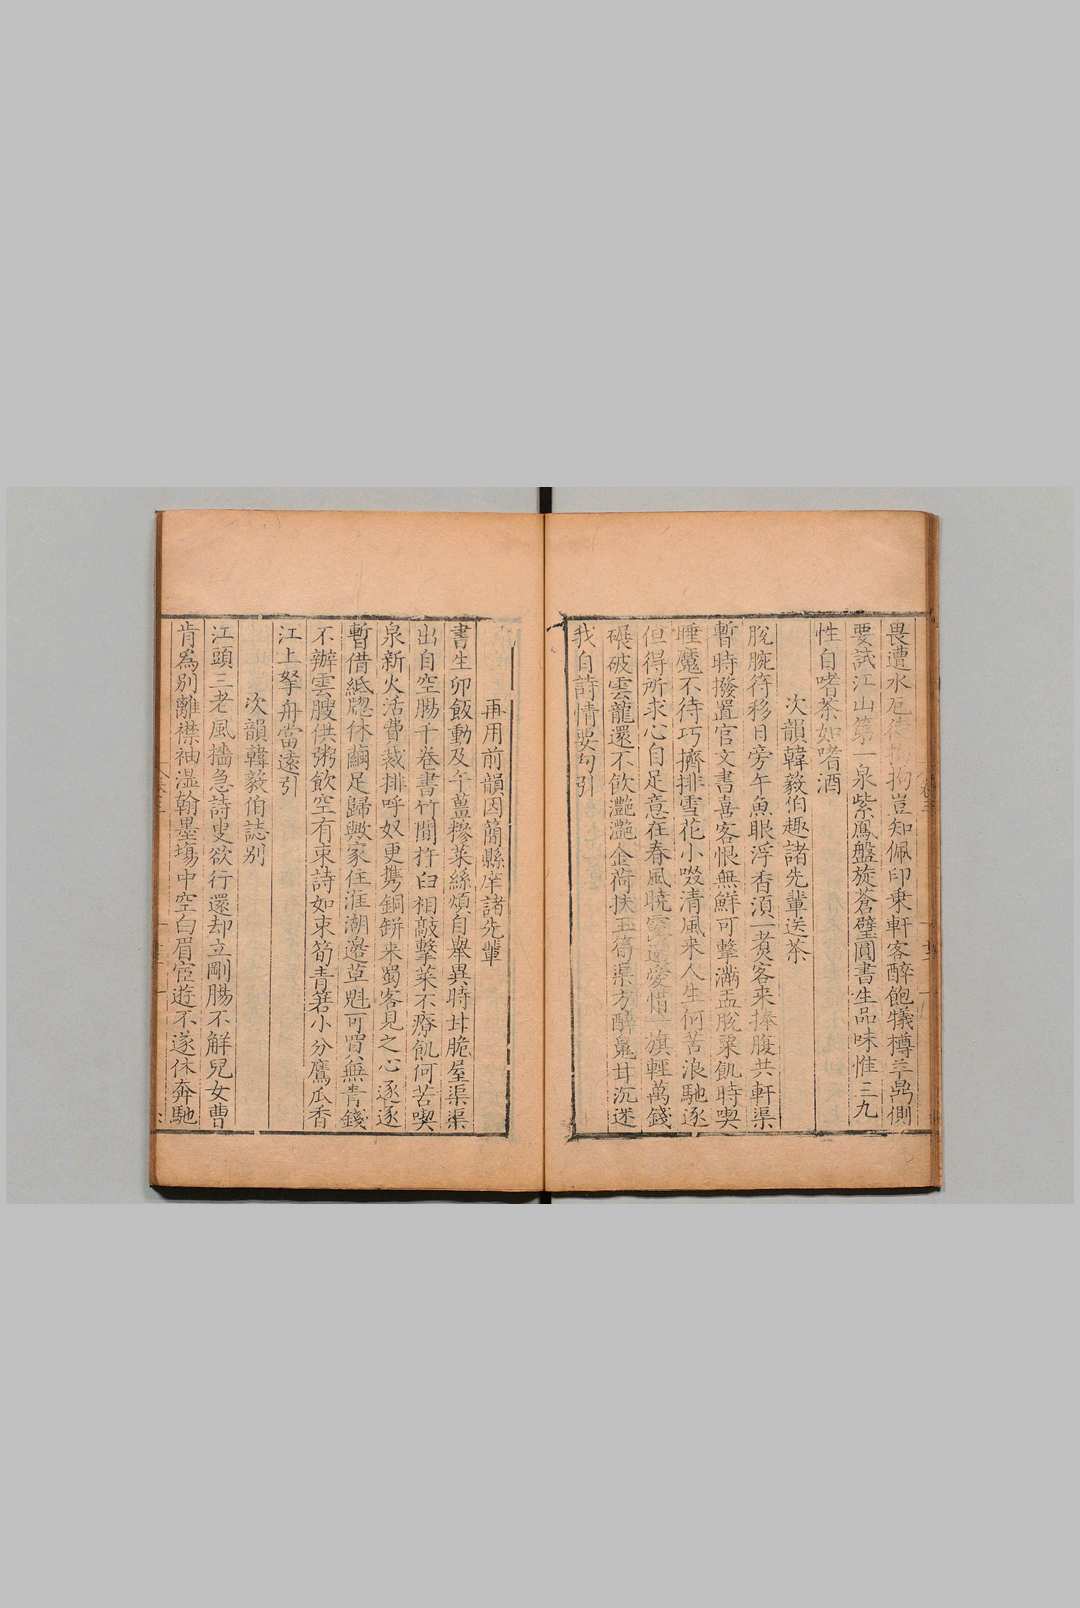 畏遭水厄 豈知佩印乗軒客醉飽犧樽羊鼎側
要試江山第一泉紫鳳盤旋蒼璧圓書生品味惟三九
性自嗜茶如嗜酒
次韻韓毅伯趣諸先輩送茶
脫腕符移日旁午魚眼浮香湏一煑客来捧腹共軒渠
暫時撥置官文書喜客恨無鮮可擊滿盂脫粟飢時喫
睡魔不待巧擠排雪花小啜清風来人生何苦浪馳逐
但得所求心自足意在春風暁 還愛惜一旗輕萬錢
碾破雲龍還不飲灔灔金荷扶玉筍渠方醉䰟甘沉迷
我自詩情要勾引
再用前韻因簡縣庠諸先輩
書生卯飯動及午薑糝菜絲煩自舉異時甘脆屋渠渠
出自空腸千巻書竹間杵臼相敲擊菜不療飢何苦喫
泉新火活費裁排呼奴更携銅缾来蜀客見之心逐逐
暫借紙牕休繭足歸歟家住淮潮邉草魁可買無青錢
不辦雲腴供粥飲空有束詩如束筍青篛小分鷹爪香
江上拏舟當遠引
次韻韓毅伯誌别
江頭三老風檣急詩叟欲行還却立剛腸不解兒女曹
肯為别離襟袖湿翰墨塲中空白眉宦逰不遂休奔馳